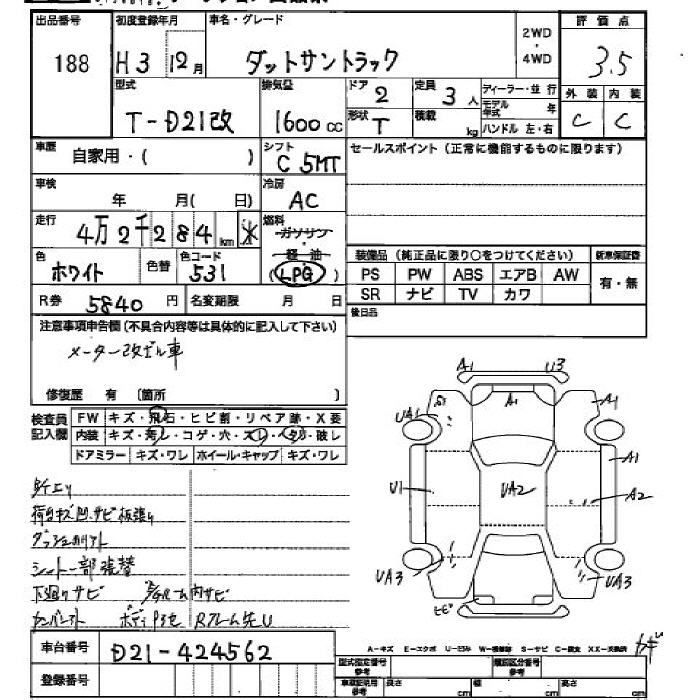 出品番号 初度登録年月 車名・グレード 2WD・4WD 評価点
188 H3 12月 ダットサントラック 3.5
型式 排気量 ドア 2 定員 3人 ディーラー・並行 外装 内装
T-D21改 1600cc 形状 T 積載 kg モデル年式 年 C C
ハンドル 左・右
車歴 自家用・( ) シフト C 5MT セールスポイント(正常に機能するものに限ります)
車検 年 月( 日) 冷房 AC
走行 4万2千284km 燃料 ガソリン
軽油
色 ホワイト 色替 色コード 531 (LPG) 装備品(純正品に限り○をつけてください) 新車保証書
PS PW ABS エアB AW 有・無
R券 5840円 名変期限 月 日 SR ナビ TV カワ
注意事項申告欄(不具合内容等は具体的に記入して下さい) 後日品
メーター改ざん車
修復歴 有 〔箇所 〕
検査員記入欄 FW キズ・飛石・ヒビ割・リペア跡・X要
内装 キズ・汚レ・コゲ・穴・スレ・切レ・破レ
ドアミラー キズ・ワレ ホイール・キャップ キズ・ワレ
A1 U3
UA1 A1 A1
A1
U1 UA2 A2
UA3 UA3
ヒビ
荷台キズ凹サビ板張り
シート一部張替
下廻りサビ
車台番号 D21-424562
A-キズ E-エクボ U-凹み S-サビ
登録番号
型式指定番号 参考 類別区分番号 参考
車庫証明用 参考 長さ cm 幅 cm 高さ cm